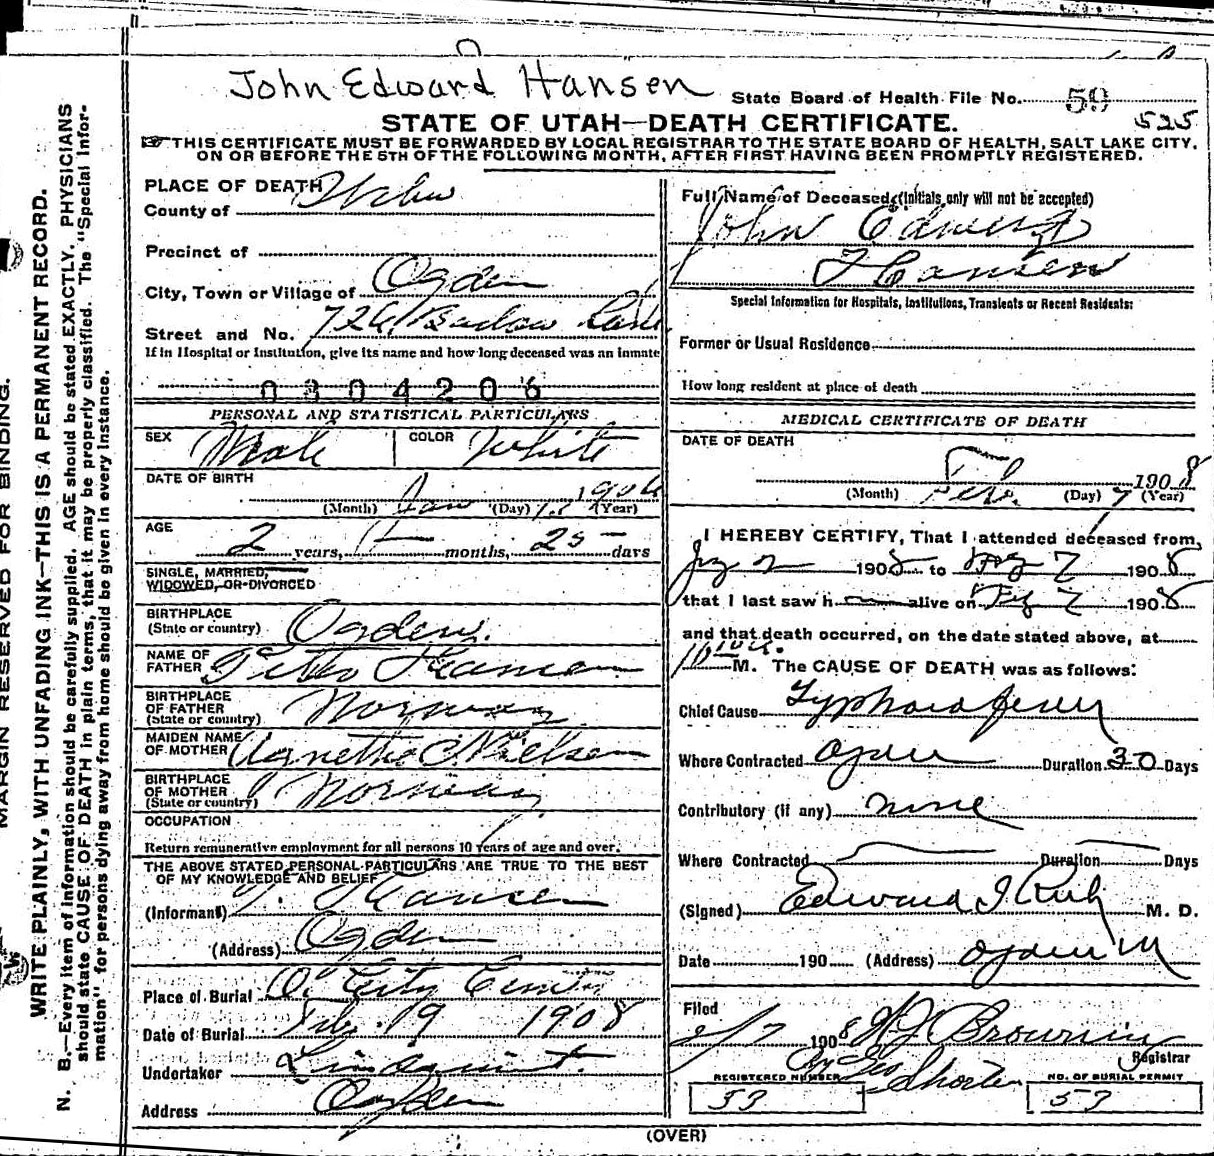 John Edward Hansen
State Board of Health File No. 59
525
STATE OF UTAH—DEATH CERTIFICATE.
THIS CERTIFICATE MUST BE FORWARDED BY LOCAL REGISTRAR TO THE STATE BOARD OF HEALTH, SALT LAKE CITY,
ON OR BEFORE THE 5TH OF THE FOLLOWING MONTH, AFTER FIRST HAVING BEEN PROMPTLY REGISTERED.
MARGIN RESERVED FOR BINDING.
WRITE PLAINLY, WITH UNFADING INK—THIS IS A PERMANENT RECORD.
N. B.—Every item of information should be carefully supplied. AGE should be stated EXACTLY. PHYSICIANS
should state CAUSE OF DEATH in plain terms, that it may be properly classified. The "Special Infor-
mation" for persons dying away from home should be given in every instance.
PLACE OF DEATH
County of Weber
Precinct of
City, Town or Village of Ogden
Street and No. 726
If in Hospital or Institution, give its name and how long deceased was an inmate
0304206
PERSONAL AND STATISTICAL PARTICULARS
SEX Male COLOR White
DATE OF BIRTH
(Month) Jan (Day) 13 (Year) 1906
AGE
2 years, months, 25 days
SINGLE, MARRIED,
WIDOWED, OR DIVORCED
BIRTHPLACE
(State or country) Ogden
NAME OF
FATHER Hansen
BIRTHPLACE
OF FATHER
(State or country) Norway
MAIDEN NAME
OF MOTHER Agnetha C Nielsen
BIRTHPLACE
OF MOTHER
(State or country) Norway
OCCUPATION
Return remunerative employment for all persons 10 years of age and over.
THE ABOVE STATED PERSONAL PARTICULARS ARE TRUE TO THE BEST
OF MY KNOWLEDGE AND BELIEF
(Informant) T. Hansen
(Address) Ogden
Place of Burial O. City
Date of Burial Feb. 19 1908
Undertaker Lindquist.
Address Ogden
Full Name of Deceased (Initials only will not be accepted)
John Edward
Hansen
Special Information for Hospitals, Institutions, Transients or Recent Residents:
Former or Usual Residence
How long resident at place of death
MEDICAL CERTIFICATE OF DEATH
DATE OF DEATH
Feb 1908
(Month) Feb. (Day) 7 (Year)
I HEREBY CERTIFY, That I attended deceased from,
1908 to Feby 7 1908
that I last saw h alive on Feby 7 1908
and that death occurred, on the date stated above, at
M. The CAUSE OF DEATH was as follows:
Chief Cause Typhoid fever
Where Contracted Ogden Duration 30 Days
Contributory (if any) none
Where Contracted Duration Days
(Signed) Edward I Rich M. D.
Date 190 (Address) Ogden U
Filed
2/7 1908 W J Browning
Registrar
By Geo Shorten
REGISTERED NUMBER
53
NO. OF BURIAL PERMIT
53
(OVER)